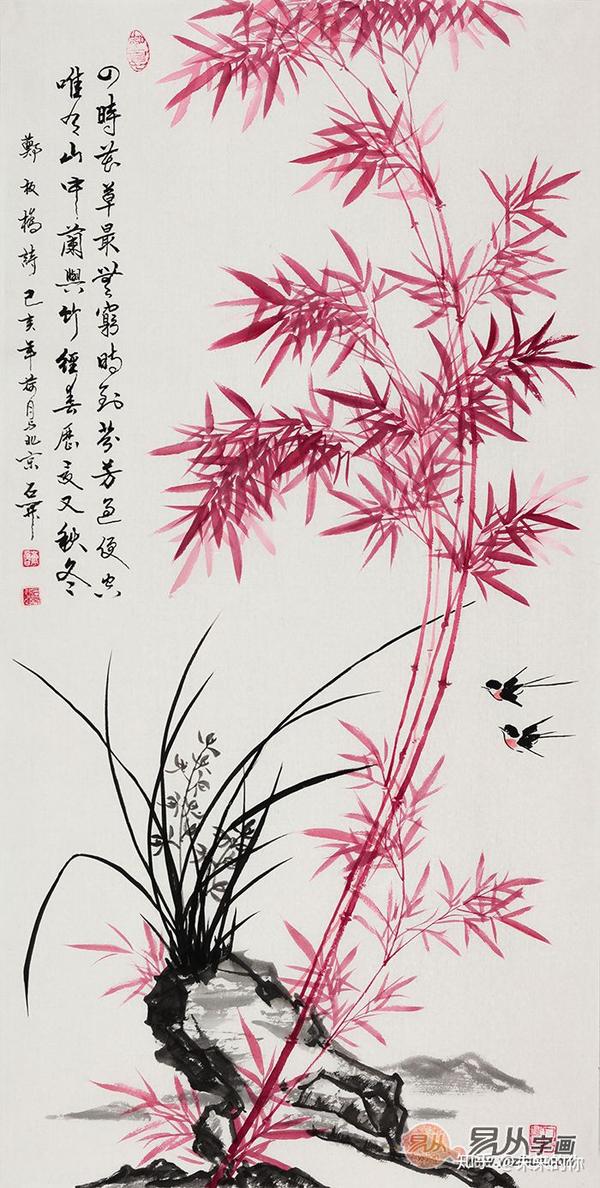 四時花草最無窮時到芬芳過便空
唯有山中蘭與竹經春歷夏又秋冬
鄭板橋詩 己亥年荷月于北京 石開
易从 易从字画
知乎 @未来的你